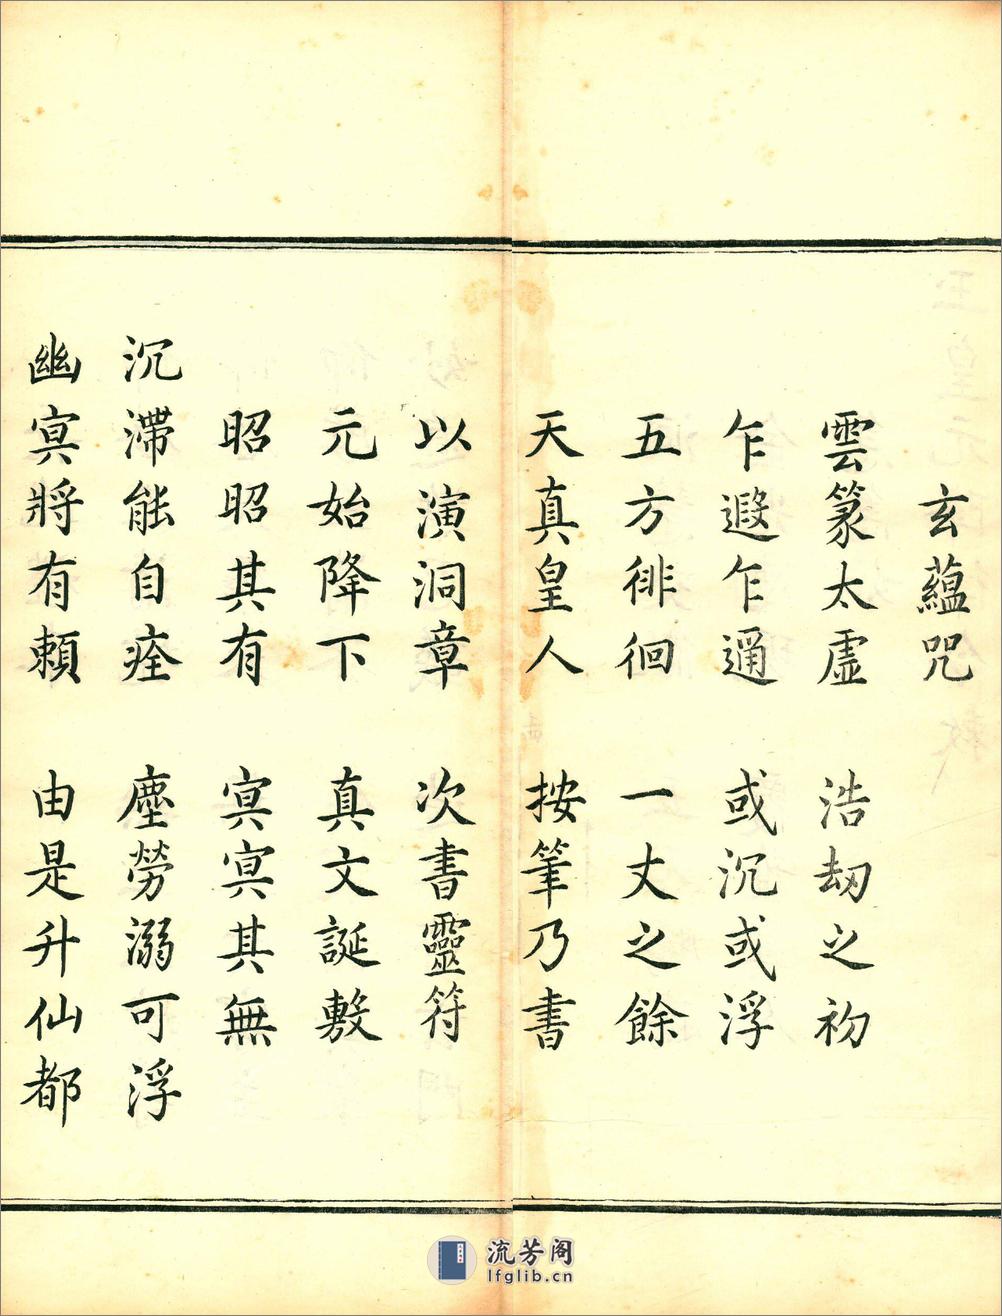 玄蘊咒
雲篆太虛 浩劫之初
乍遐乍邇 或沉或浮
五方徘徊 一丈之餘
天真皇人 按筆乃書
以演洞章 次書靈符
元始降下 真文誕敷
昭昭其有 冥冥其無
沉滯能自痊 塵勞溺可浮
幽冥將有賴 由是升仙都
流芳阁
lfglib.cn